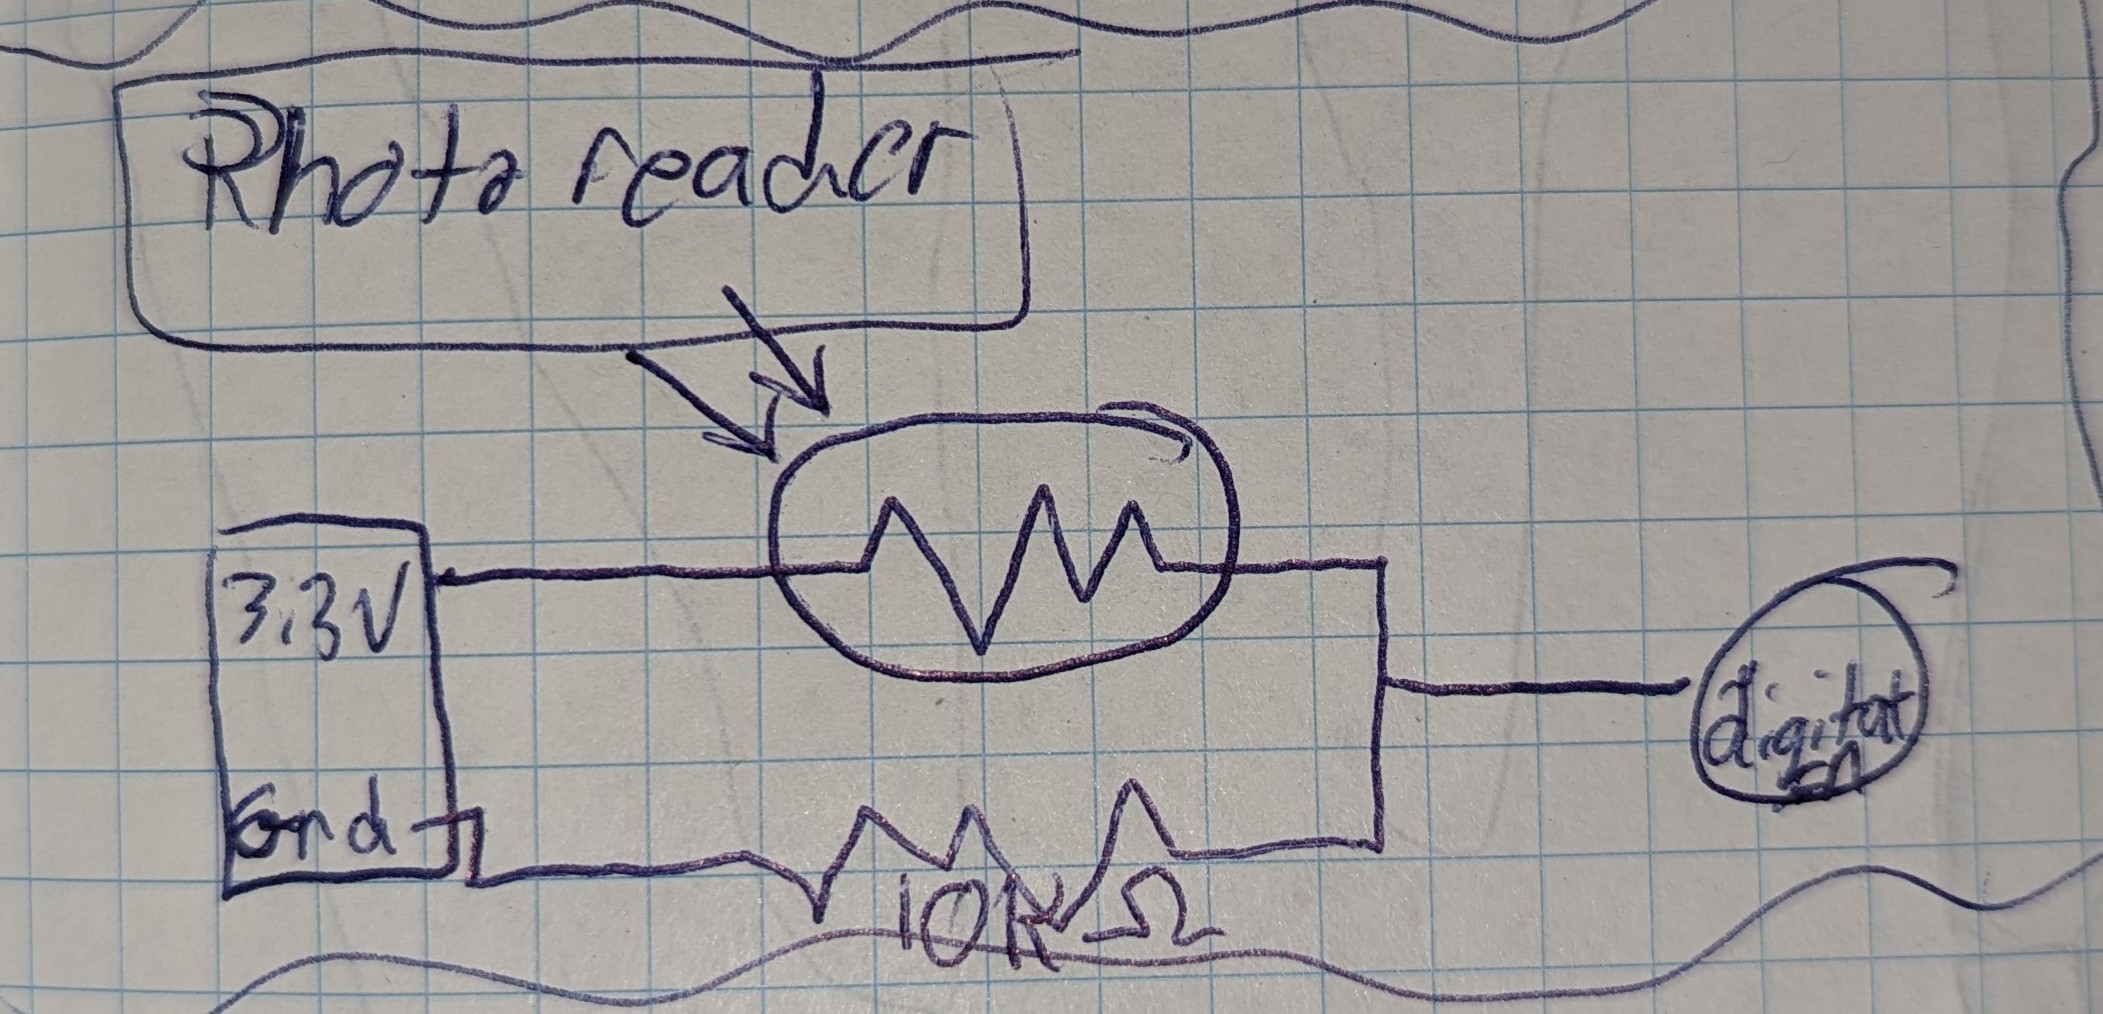 Photo reader
3.3V
Gnd
10K Ω
digital
in